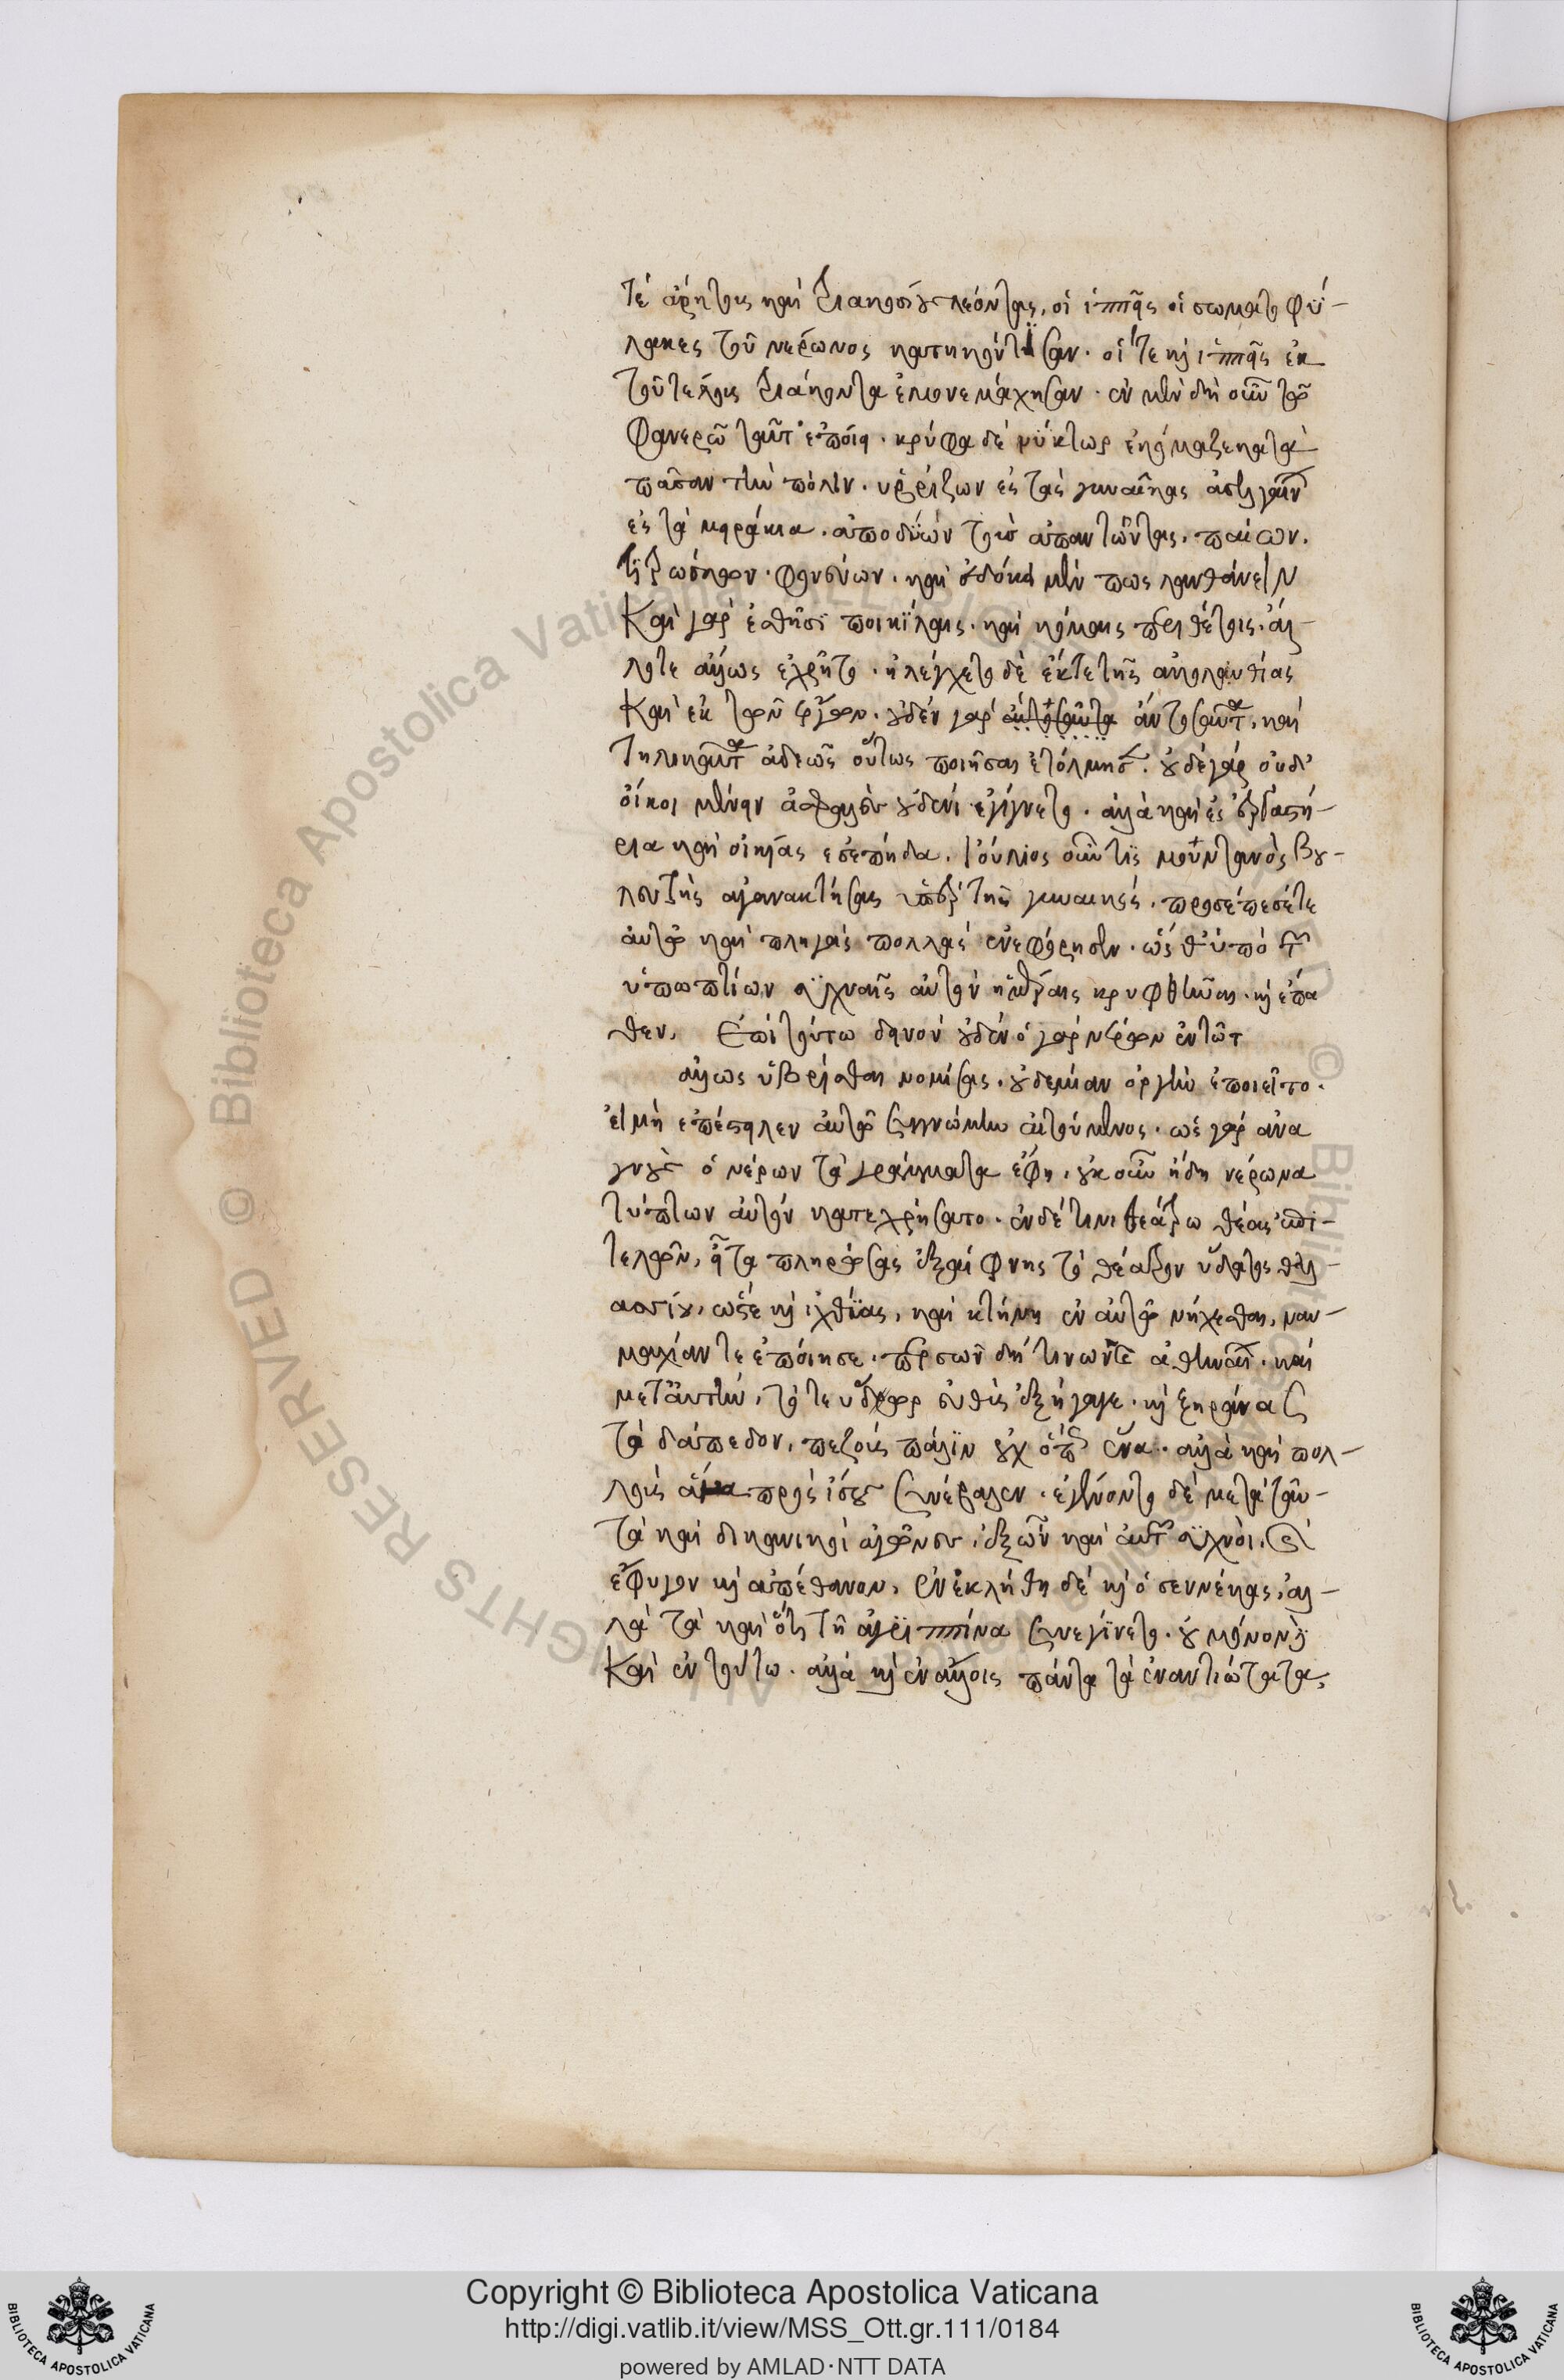 τέ ἄρκτους καὶ τριακοσίους λέοντας, οἱ ἱππεῖς οἱ σωματοφύ-
λακες τοῦ νέρωνος κατηκόντισαν. οἵ τε καὶ ἱππεῖς ἐκ
τοῦ τέλους τριάκοντα ἐμονομάχησαν. ἐν μὲν δὴ οὖν τῷ
φανερῶ ταῦτ' ἐποίει. κρύφα δὲ νύκτωρ ἐκώμαζε κατὰ
πᾶσαν τὴν πόλιν. ὑβρίζων ἐς τὰς γυναῖκας ἀσελγαίνων
ἐς τὰ μειράκια. ἀποδύων τοὺς ἀπαντῶντας. παίων.
τιτρώσκων. φονεύων. καὶ ἐδόκει μέν πως λανθάνειν
Καὶ γὰρ ἐσθῆσι ποικίλαις. καὶ κόμαις περιθέτοις. ἄλ-
λοτε ἄλλως ἐχρῆτο. ἠλέγχετο δὲ ἔκ τε τῆς ἀκολουθίας
Καὶ ἐκ τῶν ἔργων. οὐδὲν γὰρ ἄν τοσαῦτα, καὶ
τηλικαῦτα ἀδεῶς οὕτως ποιῆσαι ἐτόλμησ. οὐδὲ γὰρ οὐδ'
οἴκοι μένειν ἀσφαλὲς οὐδενί ἐγίγνετο. ἀλλὰ καὶ ἐς ἐργαστή-
ρια καὶ οἰκίας ἐσεπήδα. Ἰούλιος οὖν τις μοντανὸς βου-
λευτὴς ἀγανακτήσας ὑπὲρ τῆς γυναικός. προσέπεσέ τε
αὐτῷ καὶ πληγὰς πολλὰς ἐνεφόρησεν. ὥσθ' ὑπὸ τῶν
ὑπωπίων συχναῖς αὐτὸν ἡμέραις κρυφθῆναι. καὶ ἔπα
θεν. Ἐπὶ τούτω δεινὸν οὐδὲν ὁ γὰρ νέρων ἐν τῶτ
ἄλλως ὑβρίσθαι νομίσας. οὐδεμίαν ὀργὴν ἐποιεῖτο.
εἰ μὴ ἐπέστειλεν αὐτῷ συγγνώμην αἰτούμενος. ὡς γὰρ ἀνα
γνοὺς ὁ νέρων τὰ γράμματα ἔφη. οὐκοῦν ἤδη νέρωνα
τύπτων αὑτὸν κατεχρήσατο. ἐν δέ τινι θεάτρω θέας ἐπι-
τελῶν, εἶτα πληρώσας ἐξαίφνης τὸ θέατρον ὕδατος θαλ-
ασσίου, ὥστε καὶ ἰχθύας, καὶ κτήνη ἐν αὐτῷ νήχεσθαι, ναυ-
μαχίαν τε ἐποίησε. περσῶν δή τινων τε ἀθηναίων. καὶ
μετ' αὐτὴν, τό τε ὕδωρ εὐθὺς ἐξήγαγε. καὶ ξηράνας
τὸ δάπεδον, πεζοὺς πάλιν οὐχ ὅπως ἕνα. ἀλλὰ καὶ πολ-
λοὺς ἅμα πρὸς ἴσους συνέβαλεν. ἐγένοντο δὲ μετὰ ταῦ-
τα καὶ δικανικοὶ ἀγῶνες. ἐξ ὧν καὶ αὐτῶν συχνοὶ,
ἔφυγον καὶ ἀπέθανον. Ἐνεκλήθη δὲ καὶ ὁ σεννέκας, ἄλ-
λα τὰ καὶ ὅτι τῇ ἀγριππίνα συνεγίνετο. οὐ μόνον δὲ
Καὶ ἐν τούτω. ἀλλὰ καὶ ἐν ἄλλοις πάντα τὰ ἐναντιώτατα,
Copyright © Biblioteca Apostolica Vaticana
http://digi.vatlib.it/view/MSS_Ott.gr.111/0184
powered by AMLAD·NTT DATA